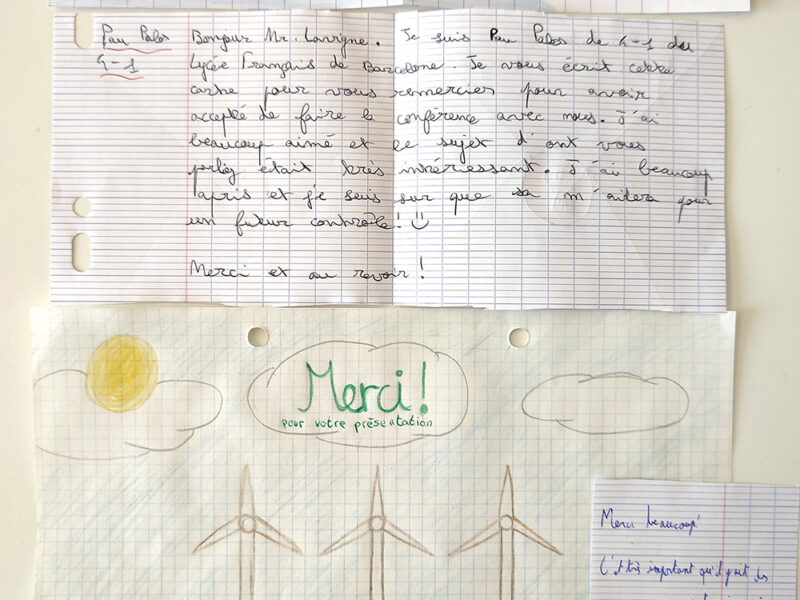 Pau Palos Bonjour Mr. Lavigne. Je suis Pau Palos de 4-1 du
4-1 Lycée Français de Barcelone. Je vous écrit cette
carte pour vous remercier pour avoir
accepté de faire la conférence avec nous. J'ai
beaucoup aimé et le sujet d'ont vous
parlez était très intéressant. J'ai beaucoup
apris et je suis sur que sa m'aidera pour
un futur contrôle! ☺
Merci et au revoir !
Merci!
pour votre présentation
Merci beaucoup
C'est très important qu'il y ait des